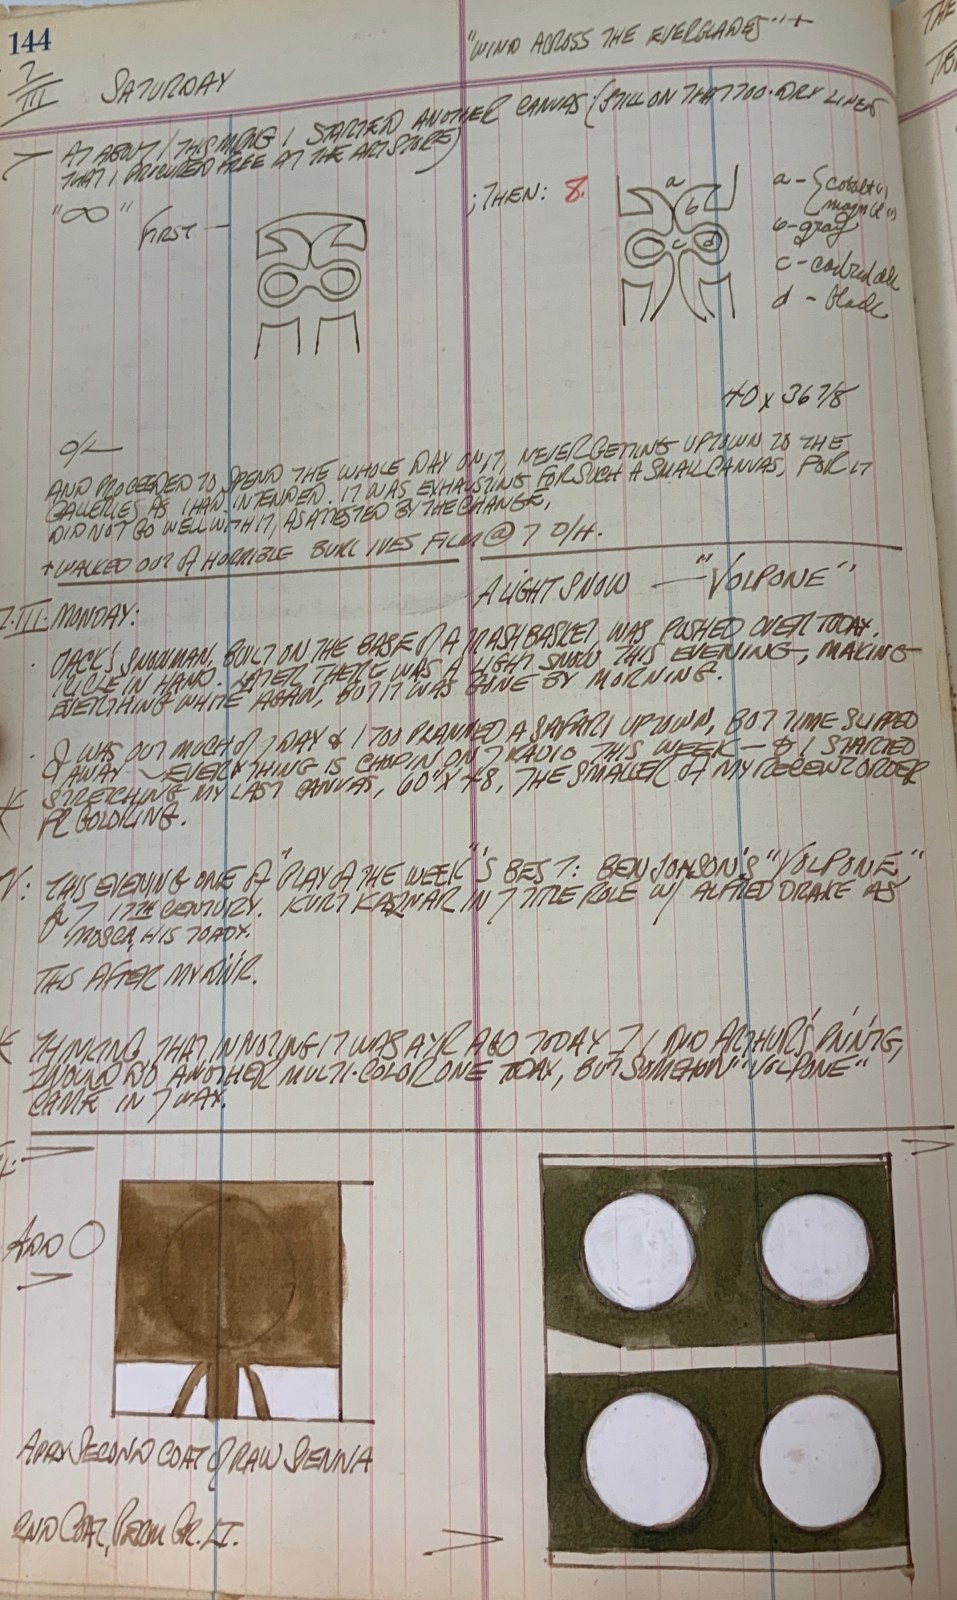 144
"WIND ACROSS THE EVERGLADES" +
7
III
SATURDAY
AT ABOUT 1 THIS MRNG I STARTED ANOTHER CANVAS (STILL ON THAT TOO-DRY LINEN
THAT I PROCURED FREE AT THE ART STORE)
"∞"
FIRST —
; THEN: 8.
a
b
c
d
a - { cobalt
b - gray
c -
d - black
40 x 36 7/8
O/L
AND PROCEEDED TO SPEND THE WHOLE DAY ON IT, NEVER GETTING UPTOWN TO THE
GALLERIES AS I HAD INTENDED. IT WAS EXHAUSTING FOR SUCH A SMALL CANVAS, FOR IT
DID NOT GO WELL WITH IT, AS ATTESTED BY THE CHANGE.
+ WALKED OUT OF A HORRIBLE BURL IVES FILM @ 7 O/H.
A LIGHT SNOW — "VOLPONE"
7.III. MONDAY:
. JACK'S SNOWMAN, BUILT ON THE BASE OF A TRASH BASKET, WAS PUSHED OVER TODAY,
ICICLE IN HAND. LATER THERE WAS A LIGHT SNOW THIS EVENING, MAKING
EVERYTHING WHITE AGAIN, BUT IT WAS GONE BY MORNING.
WAS OUT MUCH OF 7 DAY & I TOO PLANNED A SAFARI UPTOWN, BUT TIME SLIPPED
AWAY — EVERYTHING IS CHOPIN ON 7 RADIO THIS WEEK — & I STARTED
STRETCHING MY LAST CANVAS, 60" X 48, THE SMALLER OF MY RECENT ORDER
FR GOLDKING.
TV: THIS EVENING ONE OF "PLAY OF THE WEEK"'S BEST: BEN JONSON'S "VOLPONE,"
OF 7 17TH CENTURY. KURT KASZNAR IN 7 TITLE ROLE W/ ALFRED DRAKE AS
MOSCA, HIS TOADY.
THIS AFTER MY DINR.
THINKING THAT IN NOTING IT WAS A YR AGO TODAY 7 I DID ARTHUR'S PNTG,
I WOULD DO ANOTHER MULTI-COLOR ONE TODAY, BUT SOMEHOW "VOLPONE"
CAME IN 7 WAY.
ADD O
APPLY SECOND COAT OF RAW SIENNA
2ND COAT, PERM GR. LT.